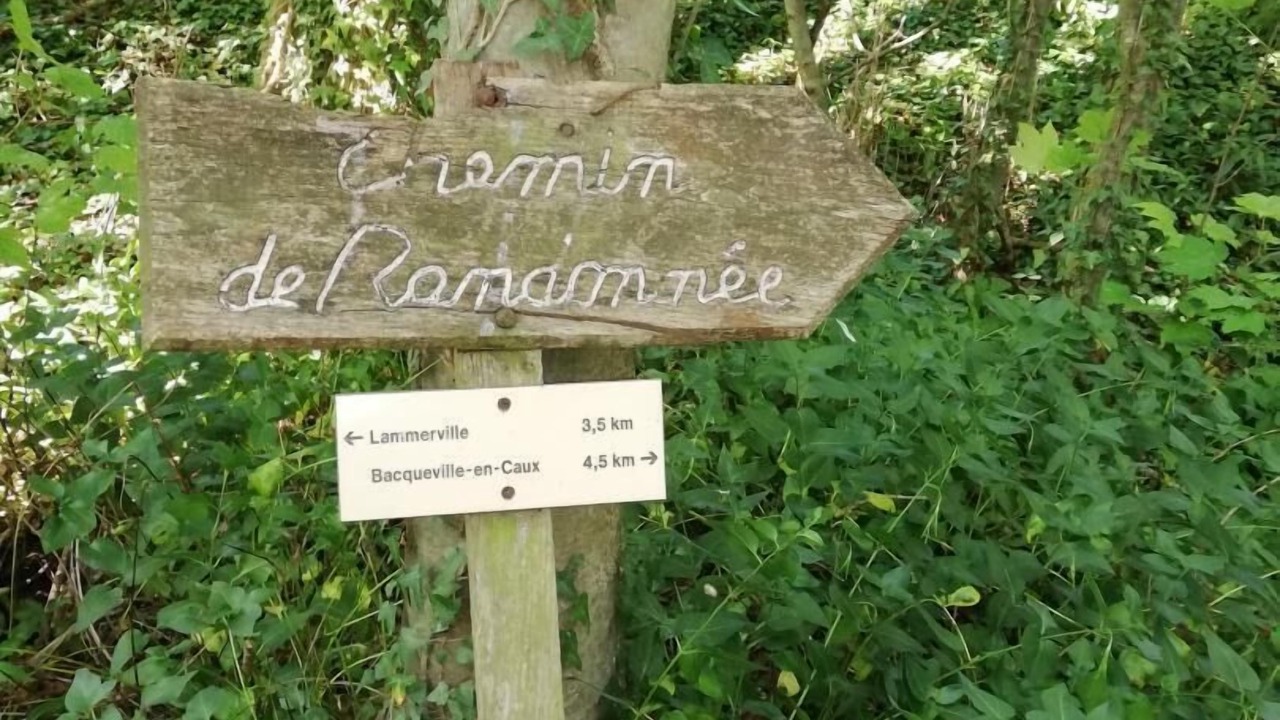 Chemin
de Ramdomnée
← Lammerville 3,5 km
Bacqueville-en-Caux 4,5 km →